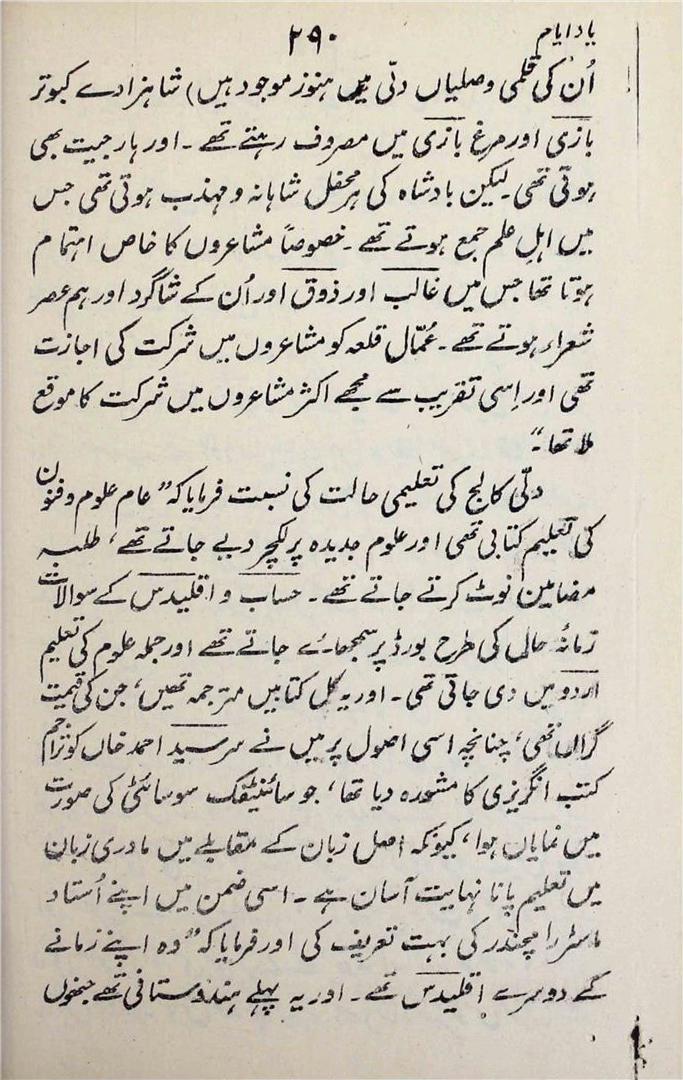 یاد ایام
۲۹۰
اُن کی قلمی وصلیاں دلّی میں ہنوز موجود ہیں) شاہزادے کبوتر
بازی اور مرغ بازی میں مصروف رہتے تھے ۔ اور ہار جیت بھی
ہوتی تھی ۔ لیکن بادشاہ کی ہر محفل شاہانہ و مہذب ہوتی تھی جس
میں اہلِ علم جمع ہوتے تھے ۔ خصوصاً مشاعروں کا خاص اہتمام
ہوتا تھا جس میں غالب اور ذوق اور اُن کے شاگرد اور ہم عصر
شعراء ہوتے تھے ۔ عُمّال قلعہ کو مشاعروں میں شرکت کی اجازت
تھی اور اِسی تقریب سے مجھے اکثر مشاعروں میں شرکت کا موقع
ملا تھا ۔“
دلّی کالج کی تعلیمی حالت کی نسبت فرمایا کہ ”عام علوم و فنون
کی تعلیم کتابی تھی اور علوم جدیدہ پر لکچر دیے جاتے تھے ، طلبہ
مضامین نوٹ کرتے جاتے تھے ۔ حساب و اقلیدس کے سوالات
زمانۂ حال کی طرح بورڈ پر سمجھائے جاتے تھے اور جملہ علوم کی تعلیم
اردو میں دی جاتی تھی ۔ اور یہ کل کتابیں مترجمہ تھیں ، جن کی قیمت
گراں تھی ، چنانچہ اسی اصول پر میں نے سرسید احمد خاں کو تراجم
کتب انگریزی کا مشورہ دیا تھا ، جو سائنٹیفک سوسائٹی کی صورت
میں نمایاں ہوا ، کیونکہ اصل زبان کے مقابلے میں مادری زبان
میں تعلیم پانا نہایت آسان ہے ۔ اسی ضمن میں اپنے اُستاد
ماسٹر رامچندر کی بہت تعریف کی اور فرمایا کہ ”وہ اپنے زمانے
کے دوسرے اقلیدس تھے ۔ اور یہ پہلے ہندوستانی تھے جنھوں